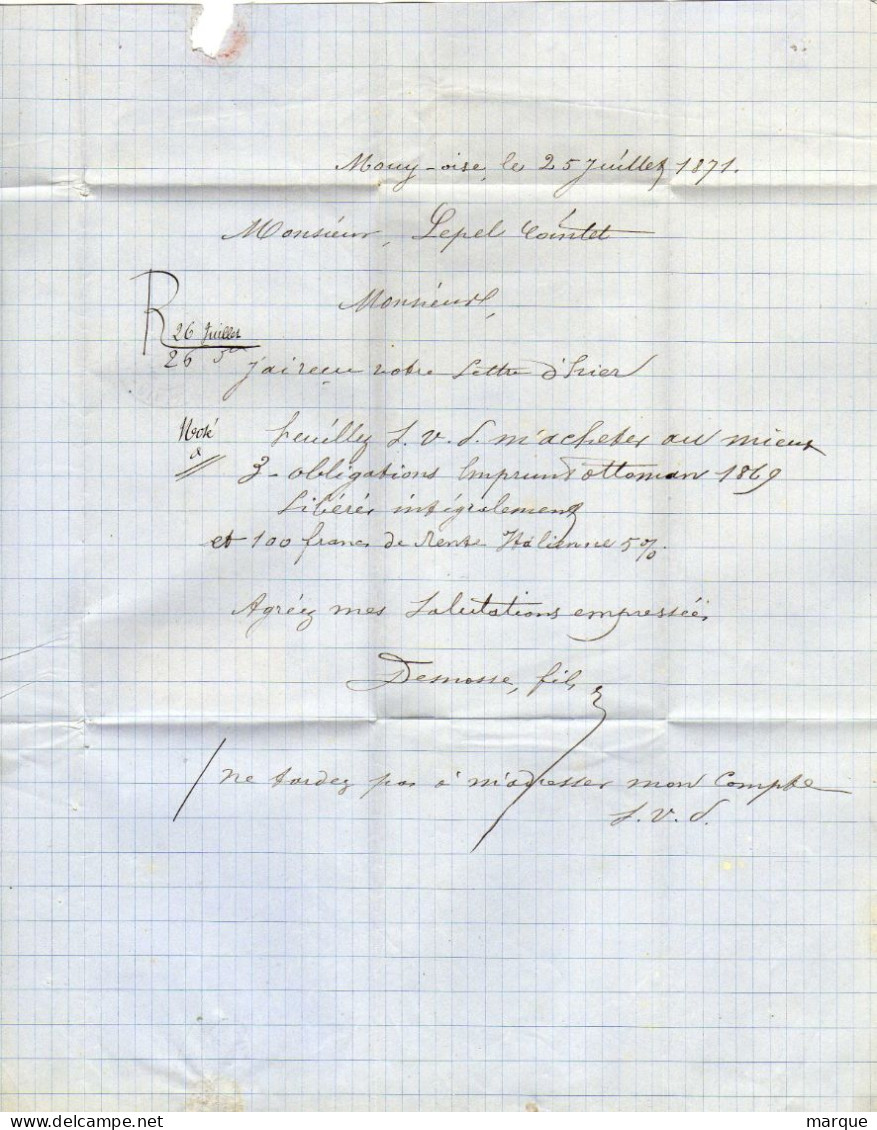 Mouy-oise, le 25 Juillet 1871.
Monsieur, Lepel Cointet
Monsieur,
R 26 Juillet
26
j'ai reçu votre Lettre d'hier
Noté
Veuillez S. v. P. m'acheter au mieux
3 - obligations Emprunt ottoman 1869
Libérés intégralement
et 100 francs de Rente Italienne 5%
Agréez mes Salutations empressées
Demosse, fils
ne tardez pas à m'adresser mon Compte
S. v. P.
marque